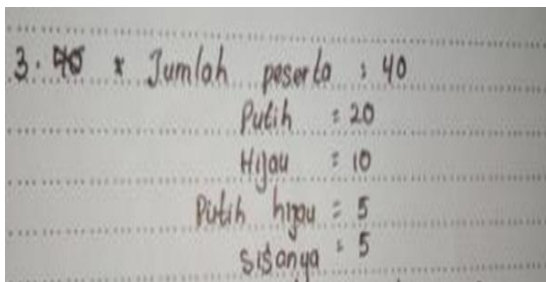 3. 40 * Jumlah peserta : 40
Putih : 20
Hijau : 10
Putih hijau : 5
Sisanya : 5